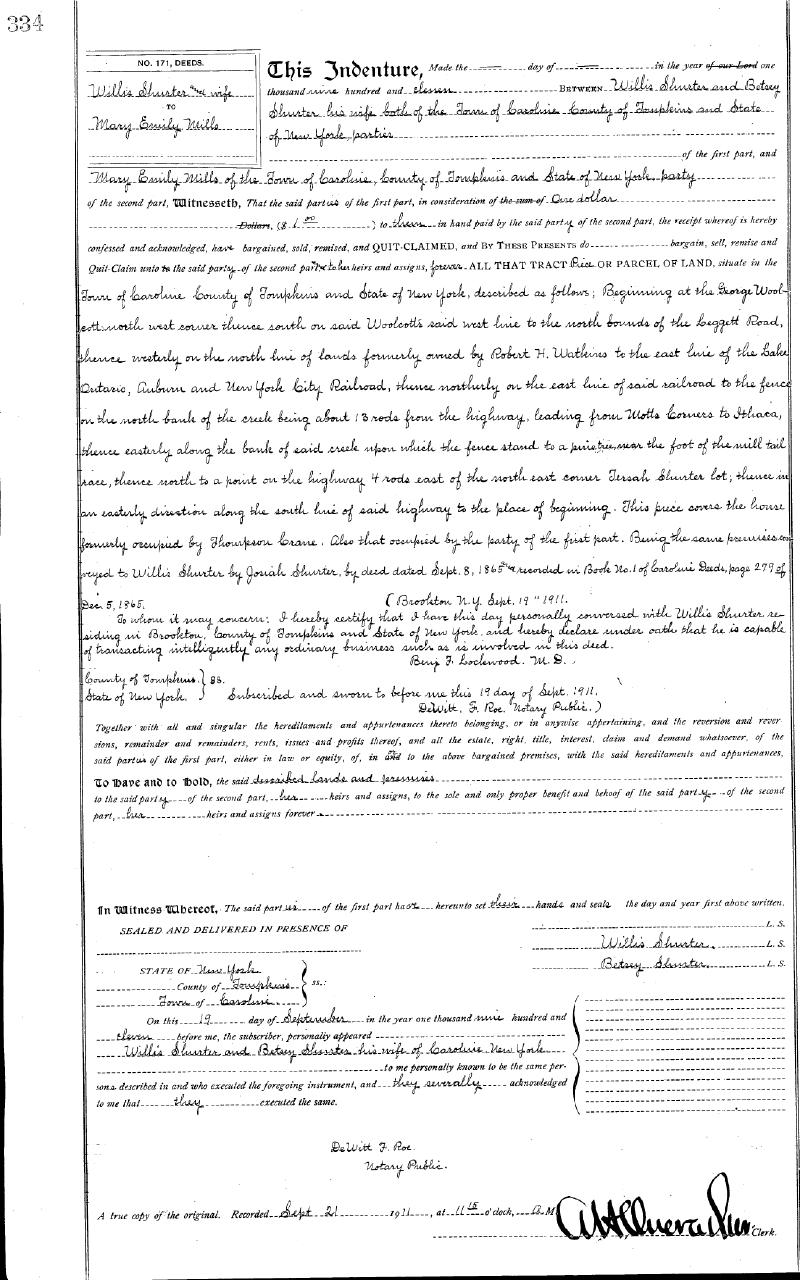 334
NO. 171, DEEDS.
Willis Shurter and wife
TO
Mary Emily Mills
This Indenture, Made the day of in the year of our Lord one
thousand nine hundred and eleven BETWEEN Willis Shurter and Betsey
Shurter his wife both of the Town of Caroline County of Tompkins and State
of New York, parties
of the first part, and
Mary Emily Mills of the Town of Caroline, County of Tompkins and State of New York, party
of the second part, Witnesseth, That the said parties of the first part, in consideration of the sum of One dollar
Dollars, ($ 1.00 ) to them in hand paid by the said party of the second part, the receipt whereof is hereby
confessed and acknowledged, have bargained, sold, remised, and QUIT-CLAIMED, and BY THESE PRESENTS do bargain, sell, remise and
Quit-Claim unto the said party of the second part & to her heirs and assigns, forever ALL THAT TRACT Piece OR PARCEL OF LAND, situate in the
Town of Caroline County of Tompkins and State of New York, described as follows; Beginning at the George Wool-
cott north west corner thence south on said Woolcotts said west line to the north bounds of the Leggett Road,
thence westerly on the north line of lands formerly owned by Robert H. Watkins to the east line of the Lake
Ontario, Auburn and New York City Railroad, thence northerly on the east line of said railroad to the fence
on the north bank of the creek being about 13 rods from the highway, leading from Motts Corners to Ithaca,
thence easterly along the bank of said creek upon which the fence stand to a pine tree, near the foot of the mill tail
race, thence north to a point on the highway 4 rods east of the north east corner Shurter lot; thence in
an easterly direction along the south line of said highway to the place of beginning. This piece covers the house
formerly occupied by Thompson Crane. Also that occupied by the party of the first part. Being the same premises con
veyed to Willis Shurter by Josiah Shurter, by deed dated Sept. 8, 1865 & recorded in Book No. 1 of Caroline Deeds, page 279 of
Dec. 5, 1865.
( Brookton N.Y. Sept. 19" 1911.
To whom it may concern: I hereby certify that I have this day personally conversed with Willis Shurter re-
siding in Brookton, County of Tompkins and State of New York and hereby declare under oath that he is capable
of transacting intelligently any ordinary business such as is involved in this deed.
Benj F. Lockwood. M.D.
County of Tompkins } ss.
State of New York. } Subscribed and sworn to before me this 19 day of Sept. 1911.
DeWitt. F. Roe. Notary Public. )
Together with all and singular the hereditaments and appurtenances thereto belonging, or in anywise appertaining, and the reversion and rever-
sions, remainder and remainders, rents, issues and profits thereof, and all the estate, right, title, interest, claim and demand whatsoever, of the
said parties of the first part, either in law or equity, of, in and to the above bargained premises, with the said hereditaments and appurtenances,
To Have and to Hold, the said described lands and premises
to the said party of the second part, her heirs and assigns, to the sole and only proper benefit and behoof of the said party of the second
part, her heirs and assigns forever
In Witness Whereof, The said parties of the first part have hereunto set their hands and seals the day and year first above written.
SEALED AND DELIVERED IN PRESENCE OF
L. S.
Willis Shurter. L. S.
Betsey Shurter. L. S.
STATE OF New York
County of Tompkins } ss.:
Town of Caroline
On this 19 day of September in the year one thousand nine hundred and
eleven before me, the subscriber, personally appeared
Willis Shurter and Betsey Shurter his wife of Caroline New York
to me personally known to be the same per-
sons described in and who executed the foregoing instrument, and they severally acknowledged
to me that they executed the same.
DeWitt F. Roe.
Notary Public.
A true copy of the original. Recorded Sept 21 1911, at 11 15 o'clock, A M
Clerk.